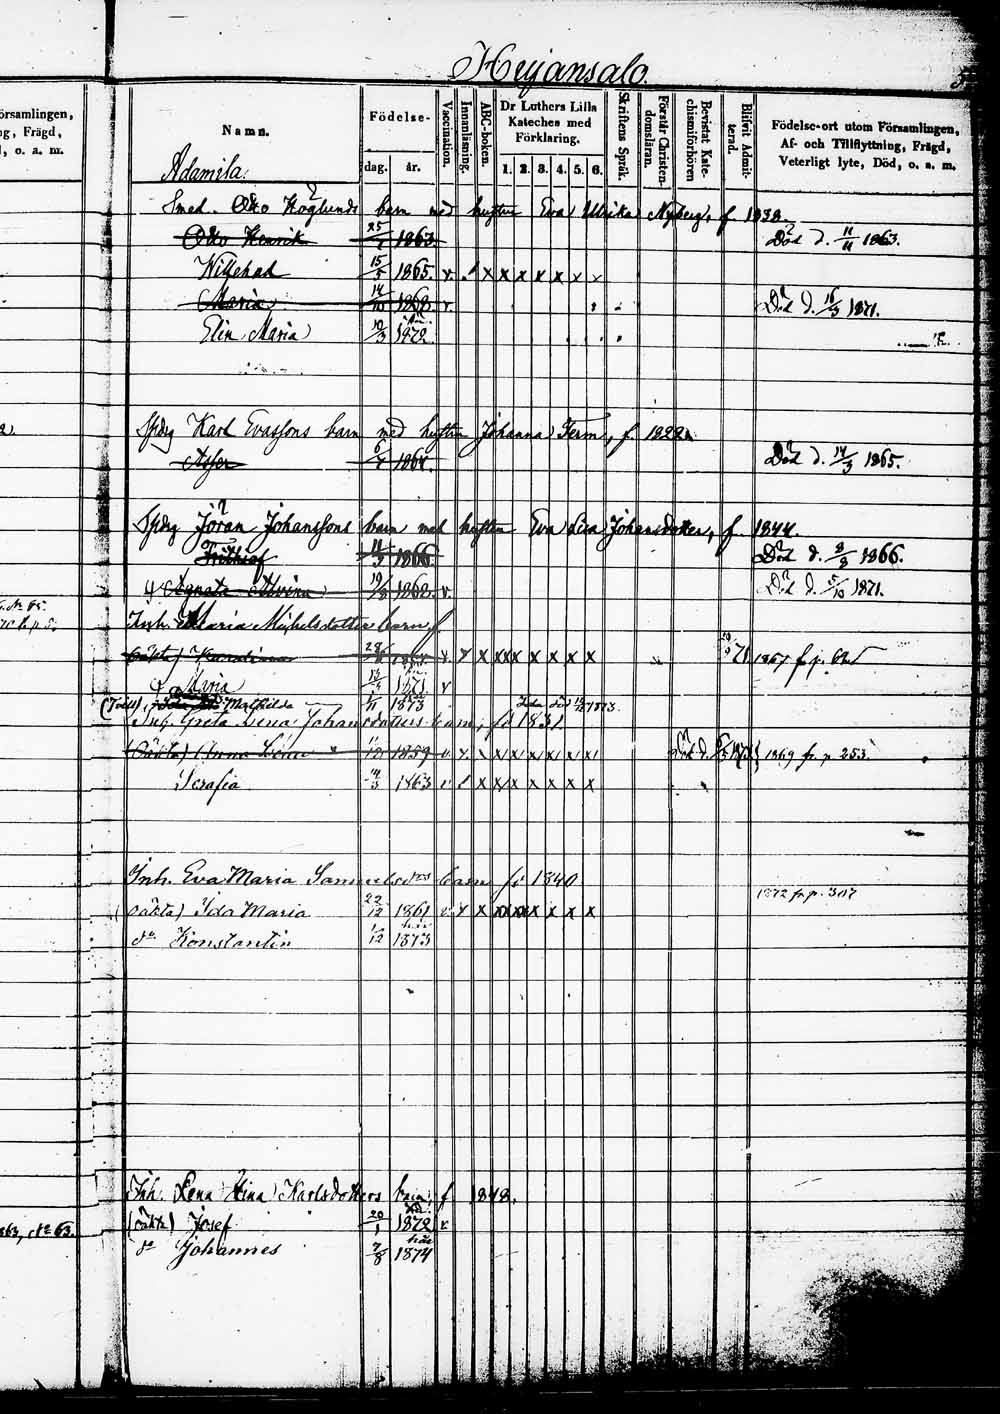 Heijansalo.
örsamlingen,
ng, Frägd,
d, o. a. m.
Namn.
Födelse-
dag. år.
Vaccination.
Innanläsning.
ABC-boken.
Dr Luthers Lilla
Kateches med
Förklaring.
1. 2. 3. 4. 5. 6.
Skriftens Språk.
Förstår Christen-
domsläran.
Bevistat Kate-
chismiförhören
Blifvit Admit-
terad.
Födelse-ort utom Församlingen,
Af- och Tillflyttning, Frägd,
Veterligt lyte, Död, o. a. m.
Adamila.
Smed. Otto Höglunds barn med hustrun Eva Ulrika Nyberg, f 1838.
Otto Henrik 25 1863 Död d. 11/11 1863.
Willehad 15/5 1865. v. x x x x x x x
Maria 14/10 1868 v. Död d. 16/3 1871.
Elin Maria 10/3 1872.
Karl Evassons barn med hustrun Johanna Ferm, f. 1822
6/4 1864. Död d. 14/3 1865.
Jöran Johanssons barn med hustrun Eva Lisa Johansdotter, f. 1844.
Frithiof 1866 Död d. 8/8 1866.
Agnata Alvina 19/8 1862. v. Död d. 5/10 1871.
Inh. Maria Michelsdotters barn f
(oäkta) Karolina v. x x x x x x x 1867 fr. p.
Maria 1871 v
Mathilda 1/11 1873 Ida död 1873
Inh. Greta Lena Johansdotters barn, fö 1831.
(Oäkta) Anna Lovisa 1859 v. x x x x x x Död d. 1873 1869 fr. p. 253.
Serafia 14/3 1863 v x x x x x x x
Inh. Eva Maria Samuelsdrs barn fö 1840
1872 fr. p. 307
(oäkta) Ida Maria 22/12 1861 v. x x x x x x
do. Konstantin 1/12 1873
här
Inh. Lena Stina Karlsdotters barn f 1848.
(oäkta) Josef 20/1 1872 v
här
do Johannes 7/8 1874
1863, No 63.